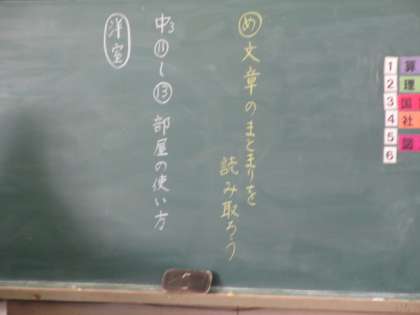 め 文章のまとまりを
読み取ろう
中3
⑪〜⑬ 部屋の使い方
洋室
1 算
2 理
3 国
4 社
5 図
6